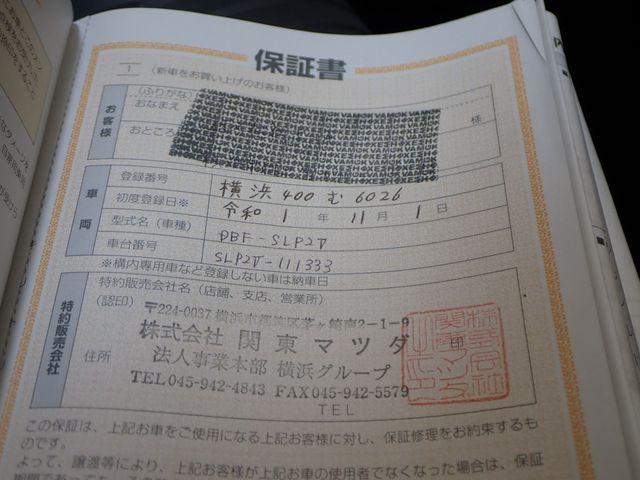 保証書
1
(新車をお買い上げのお客様)
お客様
(ふりがな)
おなまえ
様
おところ
車両
登録番号 横浜 400 む 6026
初度登録日※ 令和 1 年 11 月 1 日
型式名(車種) DBF-SLP2T
車台番号 SLP2T-111333
※構内専用車など登録しない車は納車日
特約販売会社
特約販売会社名(店舗、支店、営業所)
(認印)
〒224-0037 横浜市都筑区茅ヶ崎南2-1-9
株式会社 関東マツダ
印
住所
法人事業本部 横浜グループ
TEL045-942-4843 FAX045-942-5579
TEL
この保証は、上記お車をご使用になる上記お客様に対し、保証修理をお約束するも
のです。
よって、譲渡等により、上記お客様が上記お車の使用者でなくなった場合は、保証